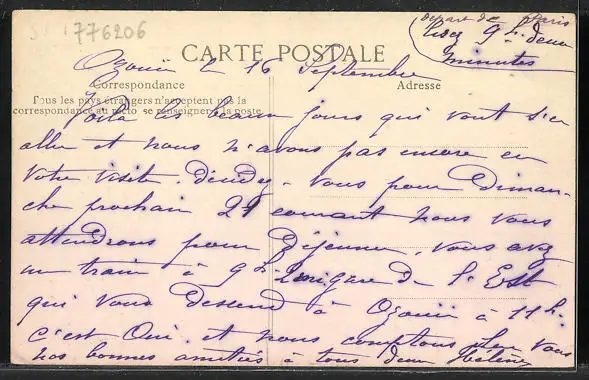 776206
Départ de Paris
lisez 9h. deux
minutes
CARTE POSTALE
Ozouër le 16 Septembre
Correspondance
Adresse
Tous les pays étrangers n'acceptent pas la
correspondance au recto se renseigner à la poste
Voilà les beaux jours qui vont s'en
aller et nous n'avons pas encore eu
votre visite. Décidez-vous pour diman-
che prochain 21 courant nous vous
attendrons pour Déjeuner, vous avez
un train à 9h gare de l'Est
qui vous descend à Ozouër à 11h.
c'est Oui. et nous comptons sur vous
nos bonnes amitiés à tous deux Hélène